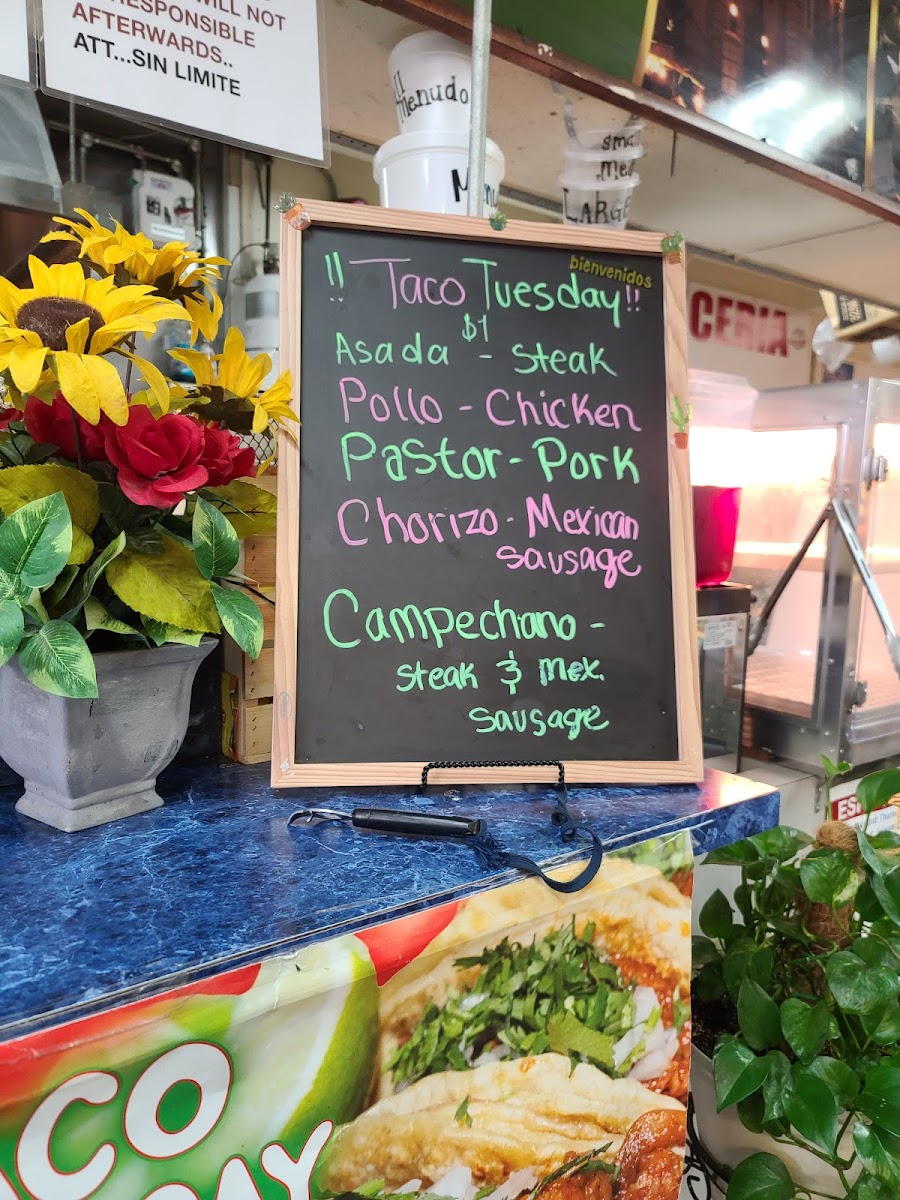 WILL NOT
RESPONSIBLE
AFTERWARDS..
ATT...SIN LIMITE
!! Menudo
small
Med
LARGE
bienvenidos
!! Taco Tuesday!!
$1
Asada - Steak
Pollo - Chicken
Pastor - Pork
Chorizo - Mexican
sausage
Campechano -
steak & Mex.
sausage
CERIA